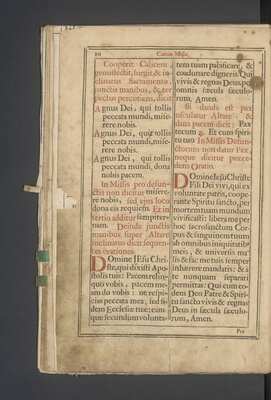 Canon Missæ.
Cooperit Calicem,
genuflectit, surgit, & in-
clinatus Sacramento,
junctis manibus, & ter
pectus percutiens, dicit
Agnus Dei, qui tollis
peccata mundi, mise-
rere nobis.
Agnus Dei, qui tollis
peccata mundi, mise-
rere nobis.
Agnus Dei, qui tollis
peccata mundi, dona
nobis pacem.
In Missis pro defun-
ctis non dicitur misere-
re nobis, sed ejus loco
dona eis requiem. Et in
tertio additur sempiter-
nam. Deinde junctis
manibus super Altare
inclinatus dicit sequen-
tes orationes.
Domine JEsu Chri-
ste, qui dixisti Apo-
stolis tuis: Pacem relin-
quo vobis, pacem me-
am do vobis: ne respi-
cias peccata mea, sed fi-
dem Ecclesiæ tuæ: eam-
que secundum volunta-
tem tuam pacificare, &
coadunare digneris: Qui
vivis & regnas Deus, per
omnia sæcula sæculo-
rum, Amen.
Si danda est pax
osculatur Altare: &
dans pacem dicit: Pax
tecum. ℟. Et cum spiri-
tu tuo. In Missis Defun-
ctorum non datur Pax,
neque dicitur præce-
dens Oratio.
Domine Jesu Christe
Fili Dei vivi, qui ex
voluntate patris, coope-
rante Spiritu sancto, per
mortem tuam mundum
vivificasti: libera me per
hoc sacrosanctum Cor-
pus & sanguinem tuum
ab omnibus iniquitatib9
meis, & universis ma-
lis & fac me tuis semper
inhærere mandatis: & a
te nunquam separari
permittas: Qui cum eo-
dem Deo Patre & Spiri-
tu sancto vivis & regnas
Deus in sæcula sæculo-
rum, Amen.